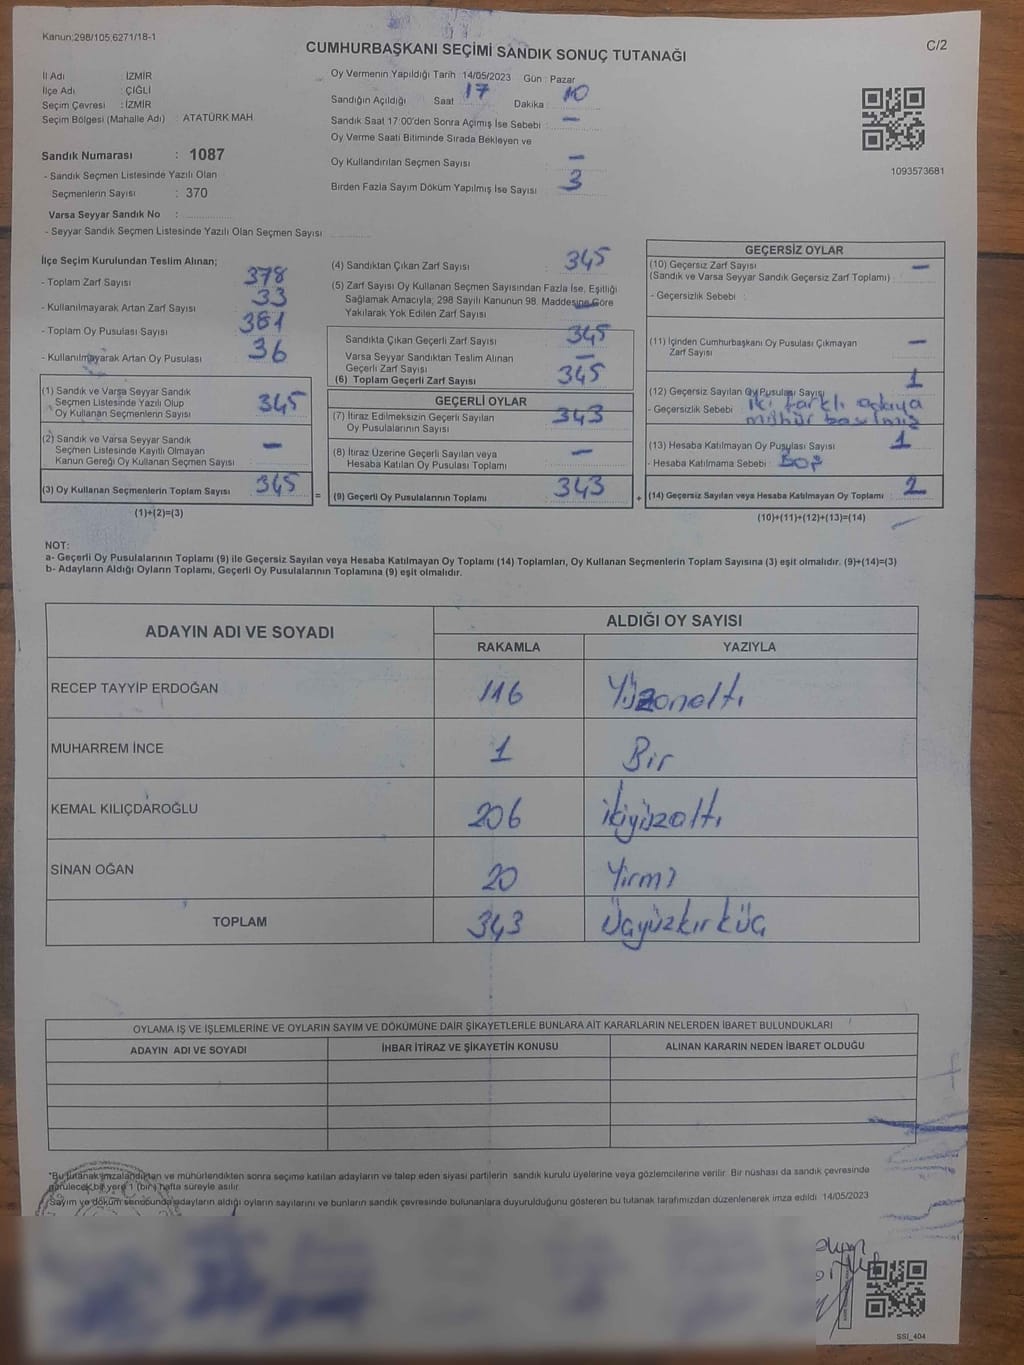 Kanun;298/105,6271/18-1
C/2
CUMHURBAŞKANI SEÇİMİ SANDIK SONUÇ TUTANAĞI
İl Adı : İZMİR
İlçe Adı : ÇİĞLİ
Seçim Çevresi : İZMİR
Seçim Bölgesi (Mahalle Adı) : ATATÜRK MAH
Sandık Numarası : 1087
- Sandık Seçmen Listesinde Yazılı Olan
Seçmenlerin Sayısı : 370
Varsa Seyyar Sandık No :
- Seyyar Sandık Seçmen Listesinde Yazılı Olan Seçmen Sayısı
Oy Vermenin Yapıldığı Tarih : 14/05/2023 Gün : Pazar
Sandığın Açıldığı Saat 17 Dakika : 10
Sandık Saat 17:00'den Sonra Açımış İse Sebebi : –
Oy Verme Saati Bitiminde Sırada Bekleyen ve
Oy Kullandırılan Seçmen Sayısı : –
Birden Fazla Sayım Döküm Yapılmış İse Sayısı : 3
1093573681
İlçe Seçim Kurulundan Teslim Alınan;
- Toplam Zarf Sayısı : 378
- Kullanılmayarak Artan Zarf Sayısı : 33
- Toplam Oy Pusulası Sayısı : 381
- Kullanılmayarak Artan Oy Pusulası : 36
(1) Sandık ve Varsa Seyyar Sandık
Seçmen Listesinde Yazılı Olup
Oy Kullanan Seçmenlerin Sayısı : 345
(2) Sandık ve Varsa Seyyar Sandık
Seçmen Listesinde Kayıtlı Olmayan
Kanun Gereği Oy Kullanan Seçmen Sayısı : –
(3) Oy Kullanan Seçmenlerin Toplam Sayısı : 345
(1)+(2)=(3)
=
(4) Sandıktan Çıkan Zarf Sayısı : 345
(5) Zarf Sayısı Oy Kullanan Seçmen Sayısından Fazla İse, Eşitliği
Sağlamak Amacıyla; 298 Sayılı Kanunun 98. Maddesine Göre
Yakılarak Yok Edilen Zarf Sayısı : –
Sandıkta Çıkan Geçerli Zarf Sayısı : 345
Varsa Seyyar Sandıktan Teslim Alınan
Geçerli Zarf Sayısı : –
(6) Toplam Geçerli Zarf Sayısı : 345
GEÇERLİ OYLAR
(7) İtiraz Edilmeksizin Geçerli Sayılan
Oy Pusulalarının Sayısı : 343
(8) İtiraz Üzerine Geçerli Sayılan veya
Hesaba Katılan Oy Pusulası Toplamı : –
(9) Geçerli Oy Pusulalarının Toplamı : 343
+
GEÇERSİZ OYLAR
(10) Geçersiz Zarf Sayısı : –
(Sandık ve Varsa Seyyar Sandık Geçersiz Zarf Toplamı)
- Geçersizlik Sebebi :
(11) İçinden Cumhurbaşkanı Oy Pusulası Çıkmayan
Zarf Sayısı : –
(12) Geçersiz Sayılan Oy Pusulası Sayısı : 1
- Geçersizlik Sebebi : iki farklı adaya
mühür basılmış
(13) Hesaba Katılmayan Oy Pusulası Sayısı : 1
- Hesaba Katılmama Sebebi : BOŞ
(14) Geçersiz Sayılan veya Hesaba Katılmayan Oy Toplamı : 2
(10)+(11)+(12)+(13)=(14)
NOT:
a- Geçerli Oy Pusulalarının Toplamı (9) ile Geçersiz Sayılan veya Hesaba Katılmayan Oy Toplamı (14) Toplamları, Oy Kullanan Seçmenlerin Toplam Sayısına (3) eşit olmalıdır. (9)+(14)=(3)
b- Adayların Aldığı Oyların Toplamı, Geçerli Oy Pusulalarının Toplamına (9) eşit olmalıdır.
ADAYIN ADI VE SOYADI ALDIĞI OY SAYISI
RAKAMLA YAZIYLA
RECEP TAYYİP ERDOĞAN 116 Yüzonaltı
MUHARREM İNCE 1 Bir
KEMAL KILIÇDAROĞLU 206 ikiyüzaltı
SİNAN OĞAN 20 Yirmi
TOPLAM 343 Üçyüzkırküç
OYLAMA İŞ VE İŞLEMLERİNE VE OYLARIN SAYIM VE DÖKÜMÜNE DAİR ŞİKAYETLERLE BUNLARA AİT KARARLARIN NELERDEN İBARET BULUNDUKLARI
ADAYIN ADI VE SOYADI İHBAR İTİRAZ VE ŞİKAYETİN KONUSU ALINAN KARARIN NEDEN İBARET OLDUĞU
"Bu tutanak imzalandıktan ve mühürlendikten sonra seçime katılan adayların ve talep eden siyasi partilerin sandık kurulu üyelerine veya gözlemcilerine verilir. Bir nüshası da sandık çevresinde
görülecek bir yere 1 (bir) hafta süreyle asılır.
Sayım ve döküm sonucunda adayların aldığı oyların sayılarını ve bunların sandık çevresinde bulunanlara duyurulduğunu gösteren bu tutanak tarafımızdan düzenlenerek imza edildi 14/05/2023
SSİ_404